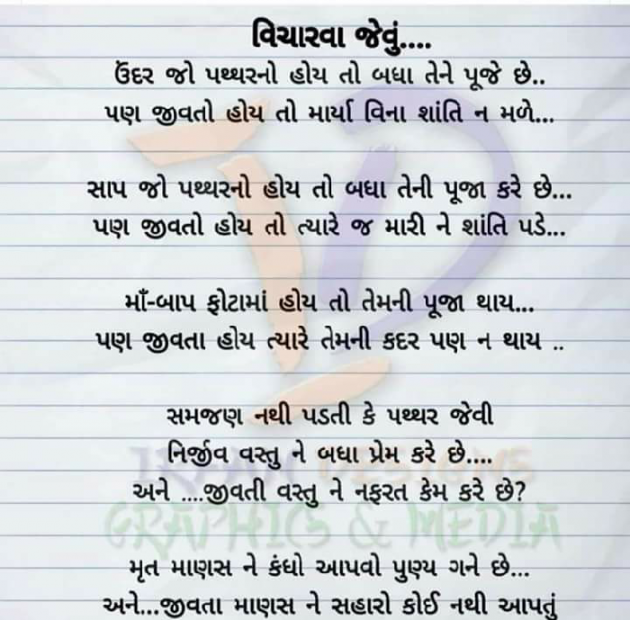 વિચારવા જેવું....
ઉંદર જો પથ્થરનો હોય તો બધા તેને પૂજે છે..
પણ જીવતો હોય તો માર્યા વિના શાંતિ ન મળે...
સાપ જો પથ્થરનો હોય તો બધા તેની પૂજા કરે છે...
પણ જીવતો હોય તો ત્યારે જ મારી ને શાંતિ પડે...
માઁ-બાપ ફોટામાં હોય તો તેમની પૂજા થાય...
પણ જીવતા હોય ત્યારે તેમની કદર પણ ન થાય ..
સમજણ નથી પડતી કે પથ્થર જેવી
નિર્જીવ વસ્તુ ને બધા પ્રેમ કરે છે....
અને ....જીવતી વસ્તુ ને નફરત કેમ કરે છે?
GRAPHICS & MEDIA
મૃત માણસ ને કંધો આપવો પુણ્ય ગને છે...
અને...જીવતા માણસ ને સહારો કોઈ નથી આપતું